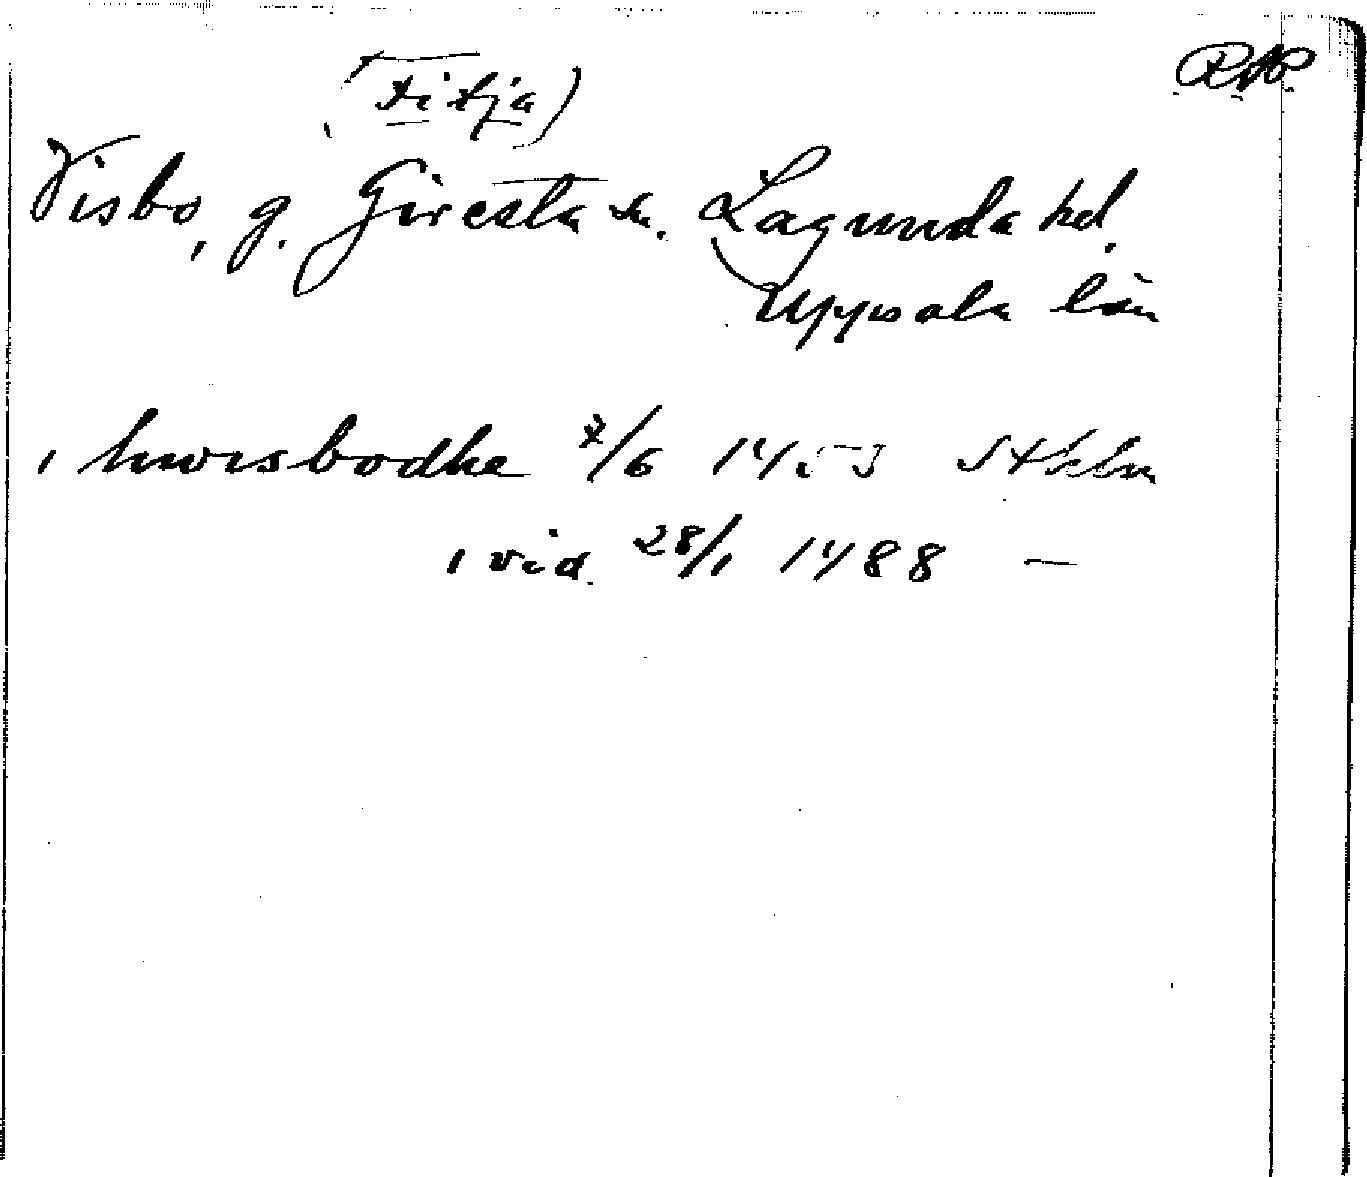 RAP
(Fitja)
Visbo, g. Giresta sn. Lagunda hd.
Uppsala län
i hwisbodhe 7/6 1453 Sthlm
i vid. 28/1 1488 —